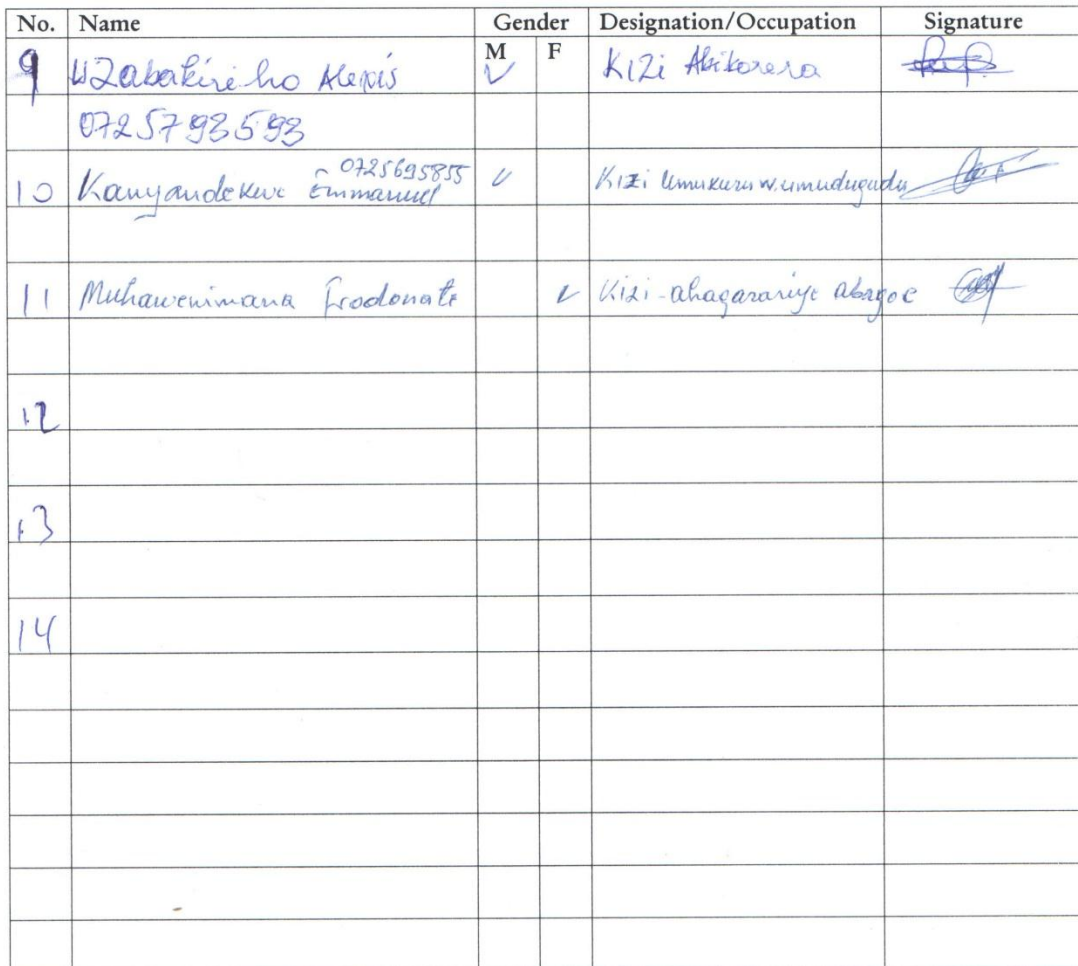 No. Name Gender Designation/Occupation Signature
M F
9 Uzabakiriho Alexis ✓ Kizi Abikorera
0725793593
10 Kanyandekwe Emmanuel 0725695855 ✓ Kizi Umukuru w.umudugudu
11 Muhawenimana Frodonate ✓ Kizi-ahagarariye abagore
12
13
14